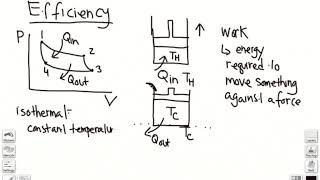 Efficiency
P
1
Qin
2
4
3
Qout
V
isothermal=
constant temperatur
TH
Qin TH
TC
Qout
Tc
Work
↳ energy
required to
move something
against a force